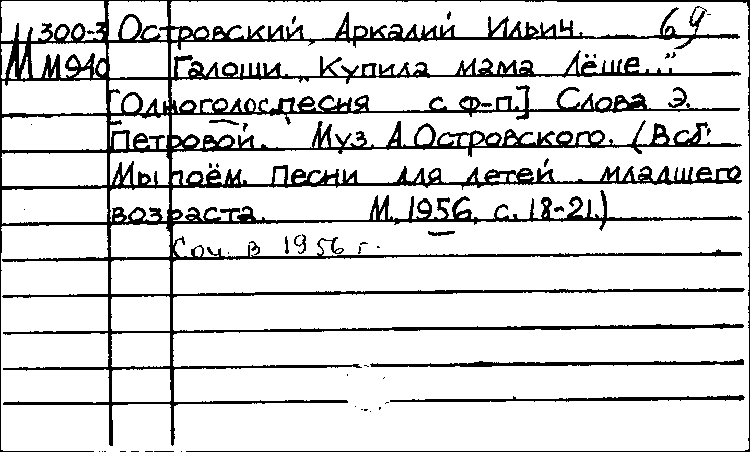 М 300-3 Островский, Аркадий Ильич. 69
М М940 Галоши. „Купила мама Лёше..."
[Одноголос. песня с ф-п.] Слова Э.
Петровой. Муз. А. Островского. (В сб:
Мы поём. Песни для детей младшего
возраста. М., 1956, с. 18-21.)
Соч. в 1956 г.